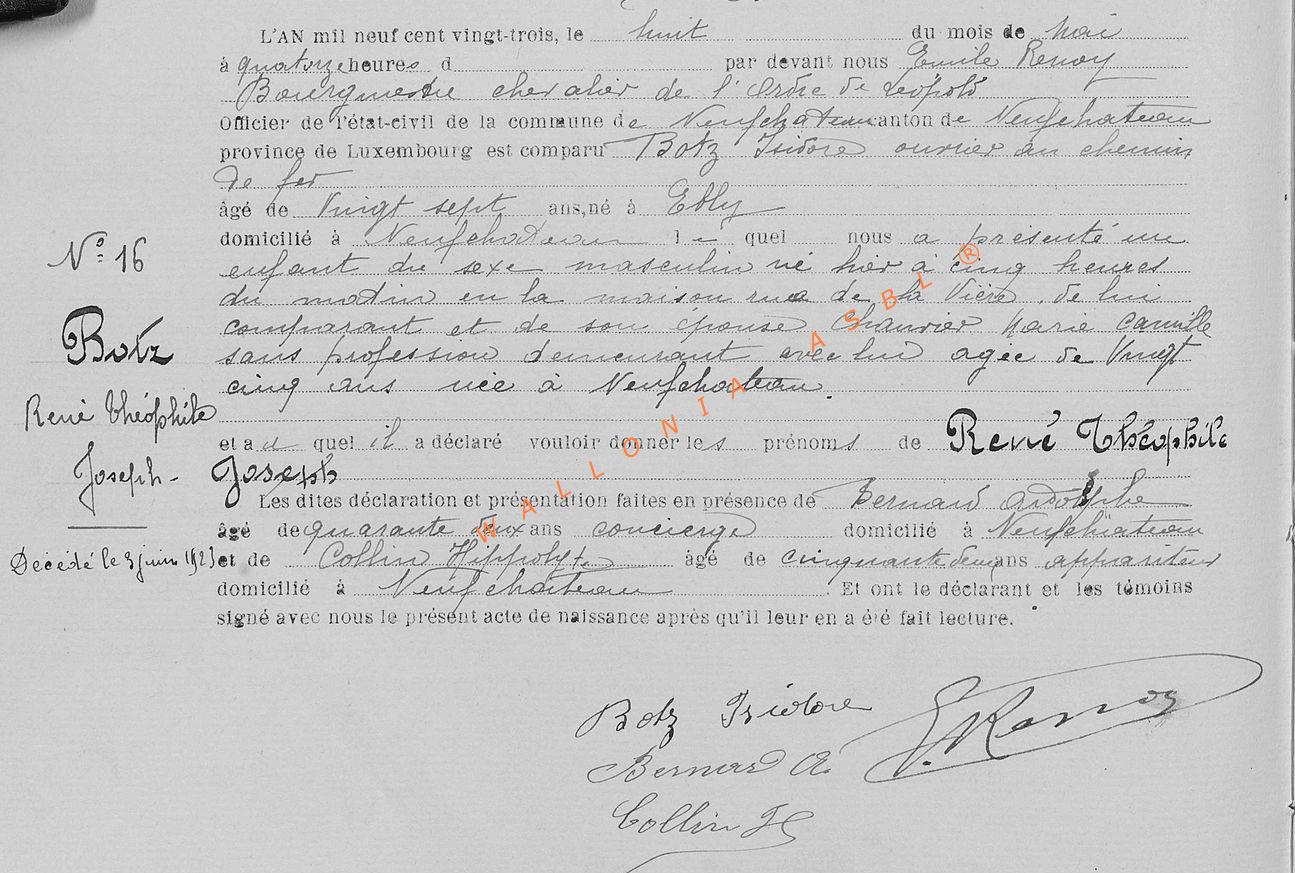 L'AN mil neuf cent vingt-trois, le huit du mois de Mai
à quatorze heures d par devant nous Emile Renoy
Bourgmestre chevalier de l'Ordre de Léopold
Officier de l'état-civil de la commune de Neufchateau canton de Neufchateau
province de Luxembourg est comparu Botz Isidore ouvrier au chemin
de fer
âgé de Vingt sept ans, né à Ebly
domicilié à Neufchateau le quel nous a présenté un
enfant du sexe masculin né hier à cinq heures
du matin en la maison rue de la Vière, de lui
comparant et de son épouse Marie Camille
sans profession demeurant avec lui agée de Vingt
cinq ans née à Neufchateau.
et a quel il a déclaré vouloir donner les prénoms de René Théophile
Joseph
Les dites déclaration et présentation faites en présence de Bernard Adolphe
âgé de quarante deux ans concierge domicilié à Neufchateau
et de Collin Hippolyte âgé de cinquante deux ans appariteur
domicilié à Neufchâteau. Et ont le déclarant et les témoins
signé avec nous le présent acte de naissance après qu'il leur en a été fait lecture.
N° 16
Botz
René Théophile
Joseph -
Décédé le 3 juin 1923
Botz Isidore
E. Renoy
Bernard A.
Collin H
WALLONIA ASBL ®